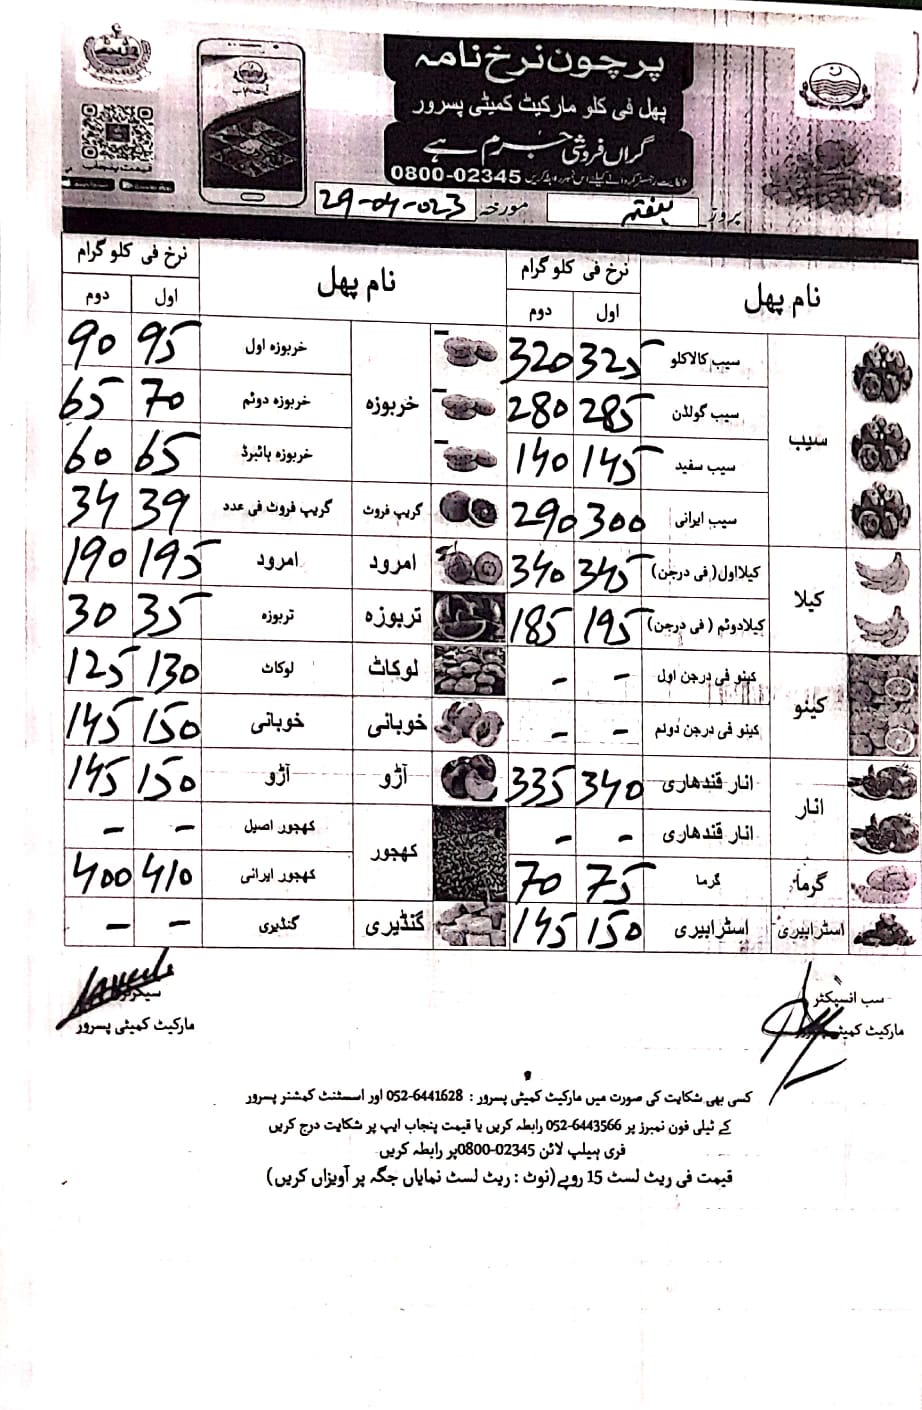 پرچون نرخ نامہ
پھل فی کلو مارکیٹ کمیٹی پسرور
گراں فروشی جرم ہے
0800-02345
قیمت پنجاب
بروز ہفتہ مورخہ 29-04-023
نام پھل نرخ فی کلو گرام نام پھل نرخ فی کلو گرام
اول دوم اول دوم
سیب سیب کالاکلو 325 320 خربوزہ خربوزہ اول 95 90
سیب گولڈن 285 280 خربوزہ دوئم 70 65
سیب سفید 145 140 خربوزہ ہائبرڈ 65 60
سیب ایرانی 300 290 گریپ فروٹ گریپ فروٹ فی عدد 39 34
کیلا کیلااول(فی درجن) 345 340 امرود امرود 195 190
کیلادوئم (فی درجن) 195 185 تربوزہ تربوزہ 35 30
کینو کینو فی درجن اول - - لوکاٹ لوکاٹ 130 125
کینو فی درجن دوئم - - خوبانی خوبانی 150 145
انار انار قندھاری 340 335 آڑو آڑو 150 145
انار قندھاری - - کھجور کھجور اصیل - -
گرما گرما 75 70 کھجور ایرانی 410 400
اسٹرابیری اسٹرابیری 150 145 گنڈیری گنڈیری - -
سب انسپکٹر سیکرٹری
مارکیٹ کمیٹی پسرور مارکیٹ کمیٹی پسرور
کسی بھی شکایت کی صورت میں مارکیٹ کمیٹی پسرور : 052-6441628 اور اسسٹنٹ کمشنر پسرور
کے ٹیلی فون نمبرز پر 052-6443566 رابطہ کریں یا قیمت پنجاب ایپ پر شکایت درج کریں
فری ہیلپ لائن 02345-0800پر رابطہ کریں
قیمت فی ریٹ لسٹ 15 روپے(نوٹ : ریٹ لسٹ نمایاں جگہ پر آویزاں کریں)